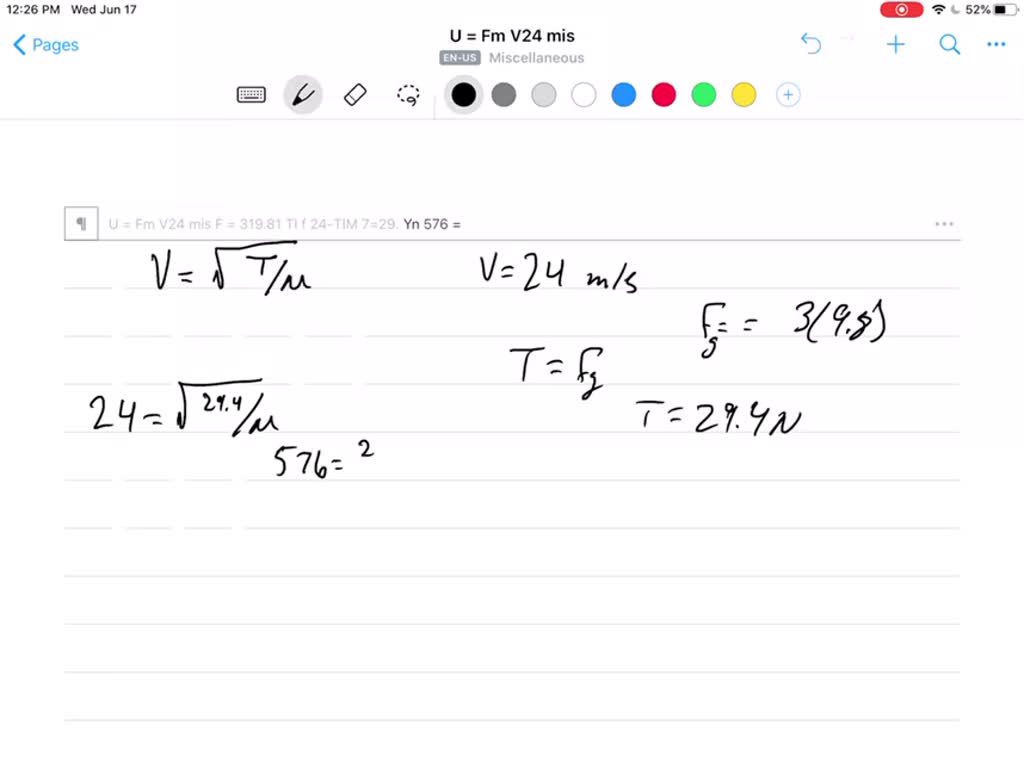 12:26 PM Wed Jun 17
52%
Pages
U = Fm V24 mis
EN-US Miscellaneous
U = Fm V24 mis F = 319.81 TI f 24-TIM 7=29. Yn 576 =
V = √T/μ
V = 24 m/s
Fg = = 3(9.8)
T = Fg
24 = √29.4/μ
T = 29.4 N
576 = 2